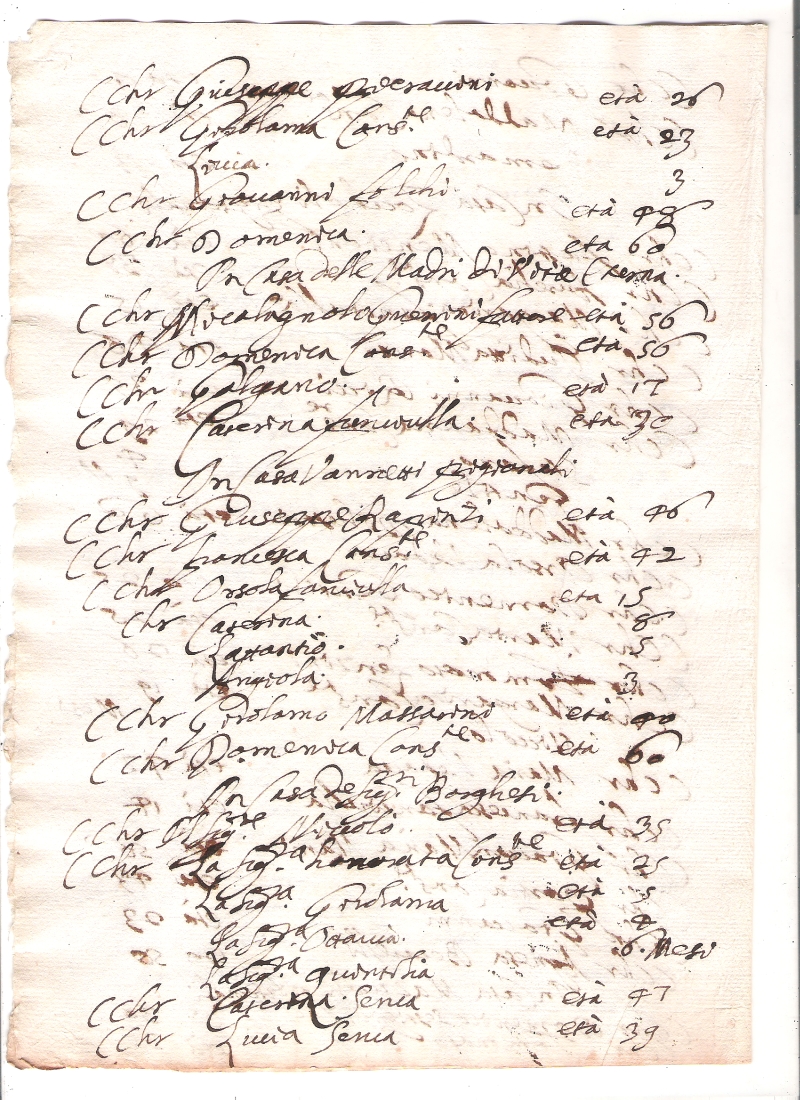 CChr Giuseppe Pieraccini età 26
CChr Girolama Cons.te età 23
Lucia. 3
CChr Giovanni Folchi età 48
CChr Domenica. età 60
In Casa delle Madri di Vita Eterna.
CChr Micalagnolo Domenini fattore età 56
CChr Domenica Cons.te età 56
CChr Galgano. età 17
CChr Caterina fanciulla. età 30
In Casa Vannetti Pigionali
CChr Giuseppe età 46
CChr Francesca Cons.te età 42
CChr Orsola fanciulla età 15
Chr Caterina. 8
Lattantio. 5
Angiola. 3
CChr Girolamo Massarini età 40
CChr Domenica Cons.te età 60
In Casa de Sig.ri Borghesi.
CChr Il Sig.re Niccolò. età 35
CChr La Sig.ra honorata Cons.te età 25
La Sig.ra Girolama età 5
La Sig.ra Ottavia. età 4
La Sig.ra Quintilia 6. Mesi
CChr Caterina Serva età 47
CChr Lucia Serva età 39